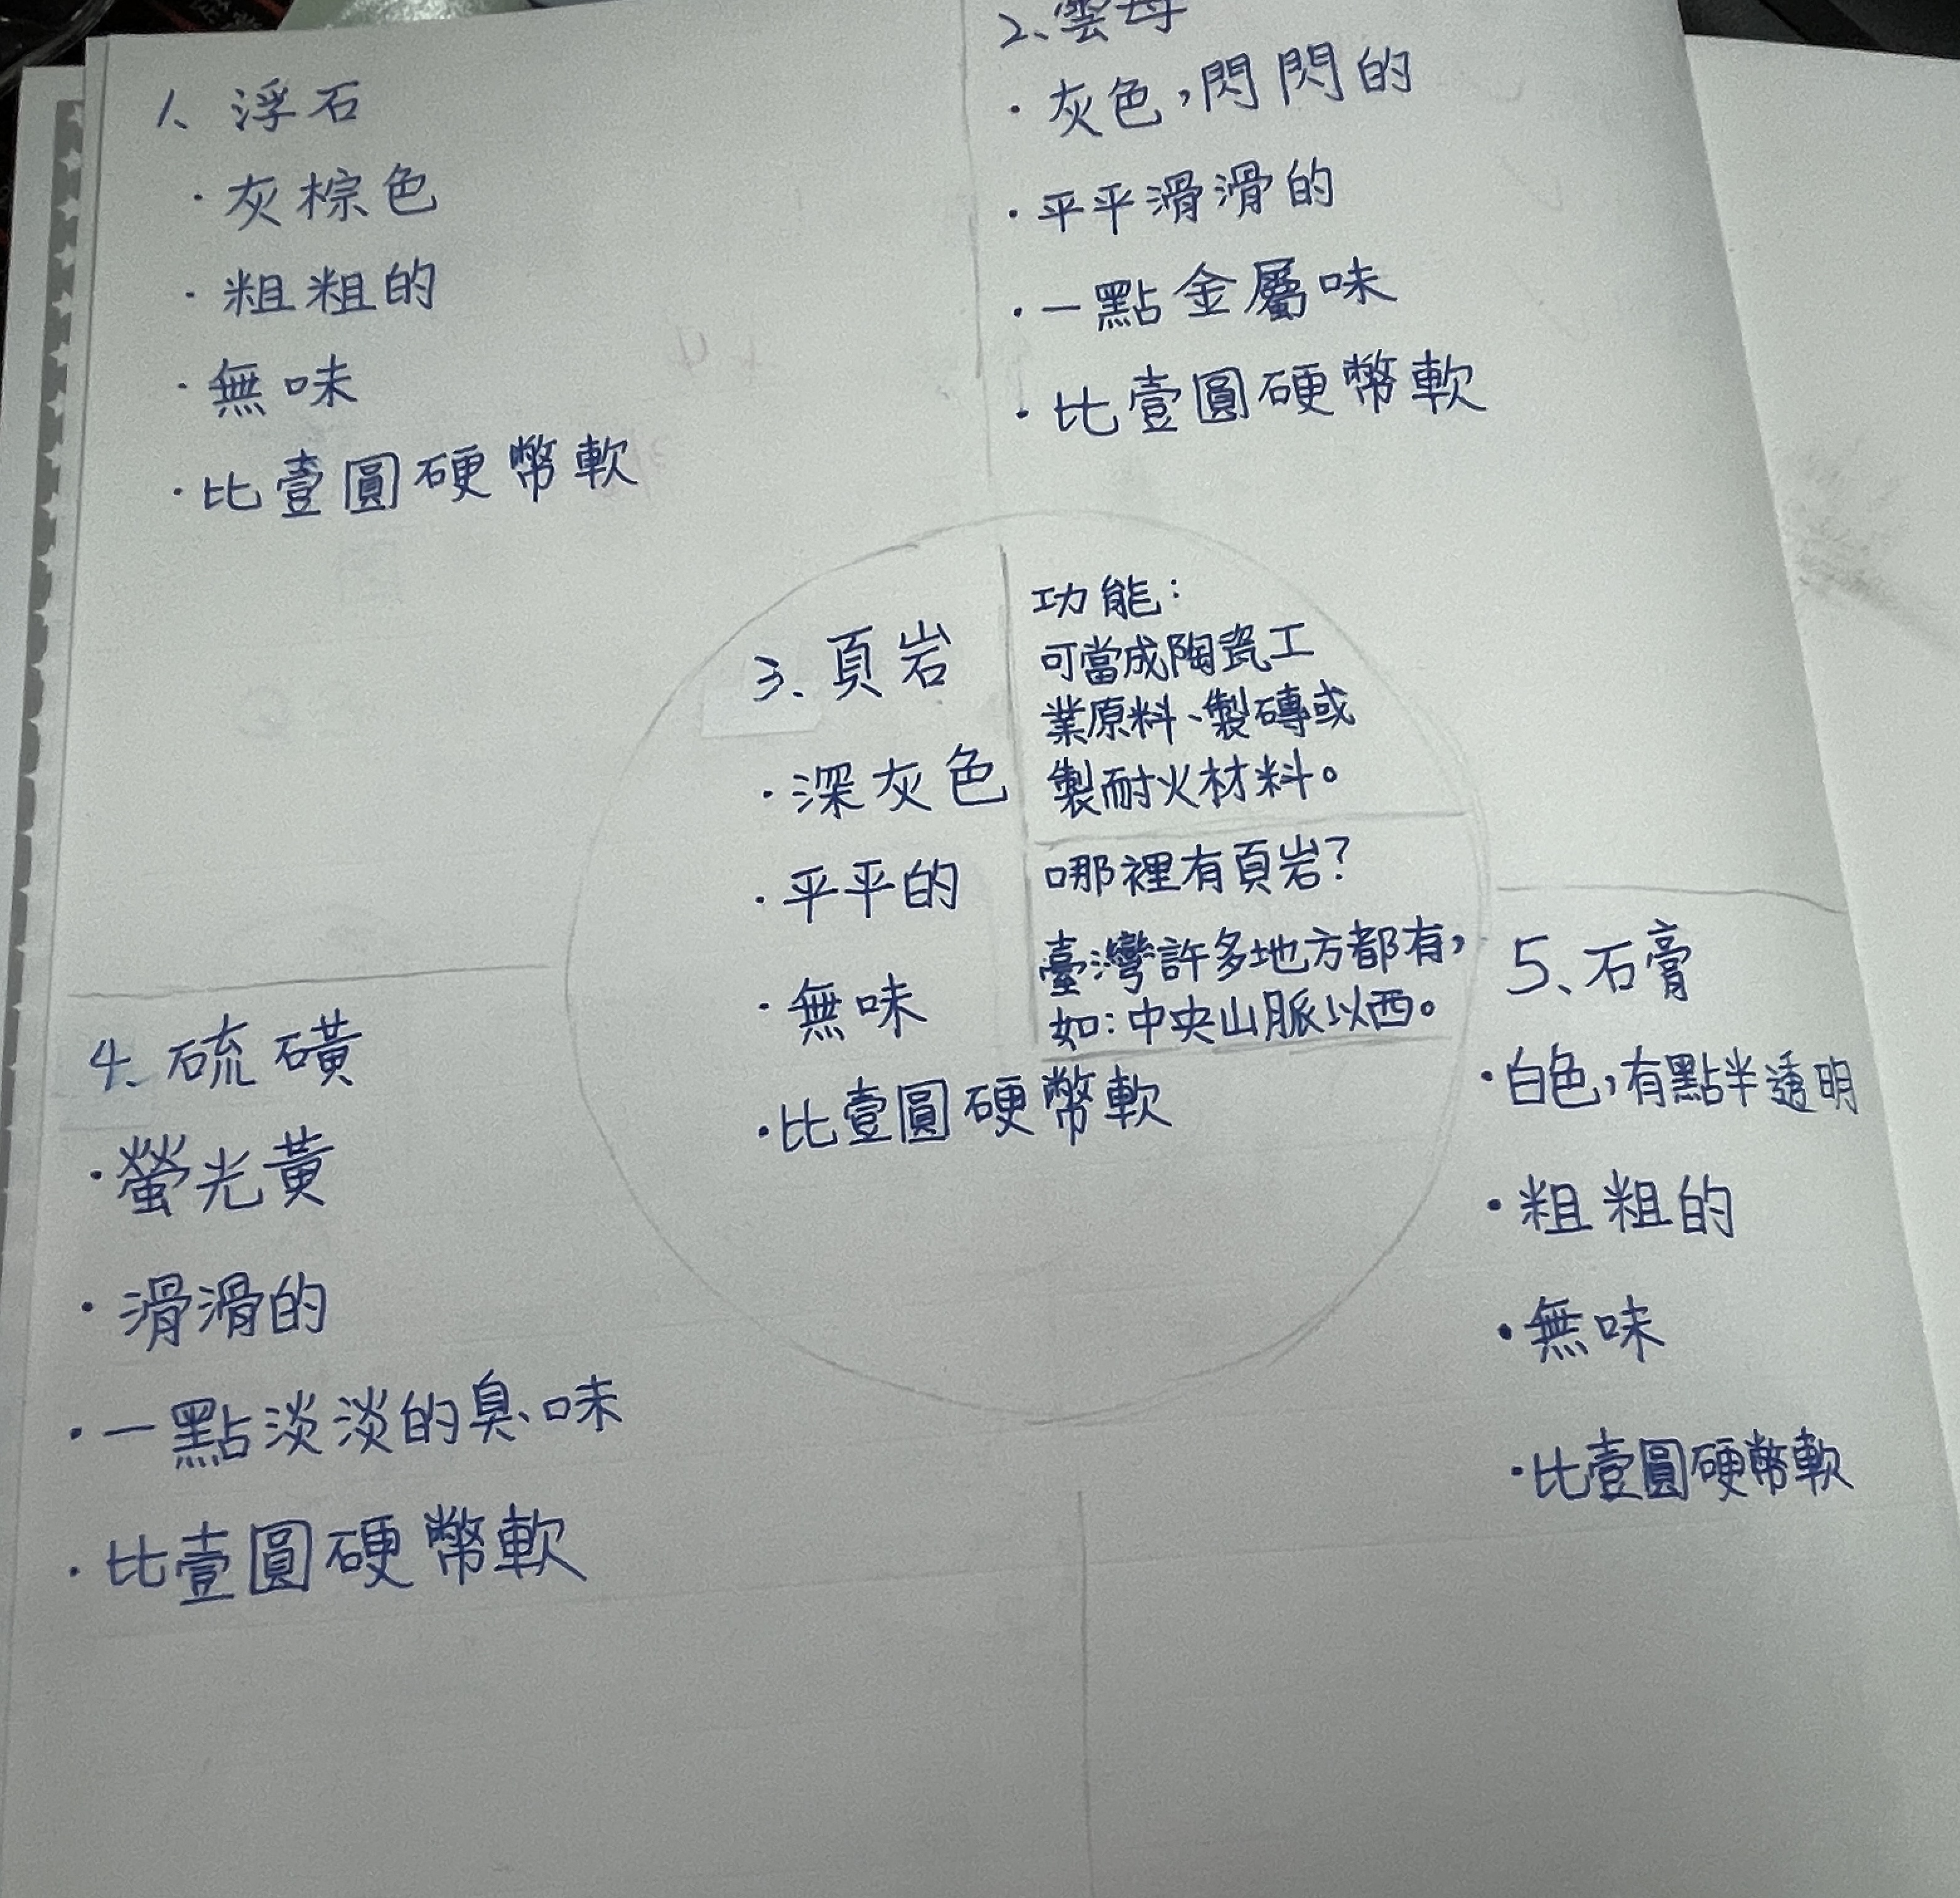 1、浮石
·灰棕色
·粗粗的
·無味
·比壹圓硬幣軟
2、雲母
·灰色,閃閃的
·平平滑滑的
·一點金屬味
·比壹圓硬幣軟
3、頁岩
·深灰色
·平平的
·無味
·比壹圓硬幣軟
功能:
可當成陶瓷工
業原料、製磚或
製耐火材料。
哪裡有頁岩?
臺灣許多地方都有,
如:中央山脈以西。
4、硫磺
·螢光黃
·滑滑的
·一點淡淡的臭味
·比壹圓硬幣軟
5、石膏
·白色,有點半透明
·粗粗的
·無味
·比壹圓硬幣軟